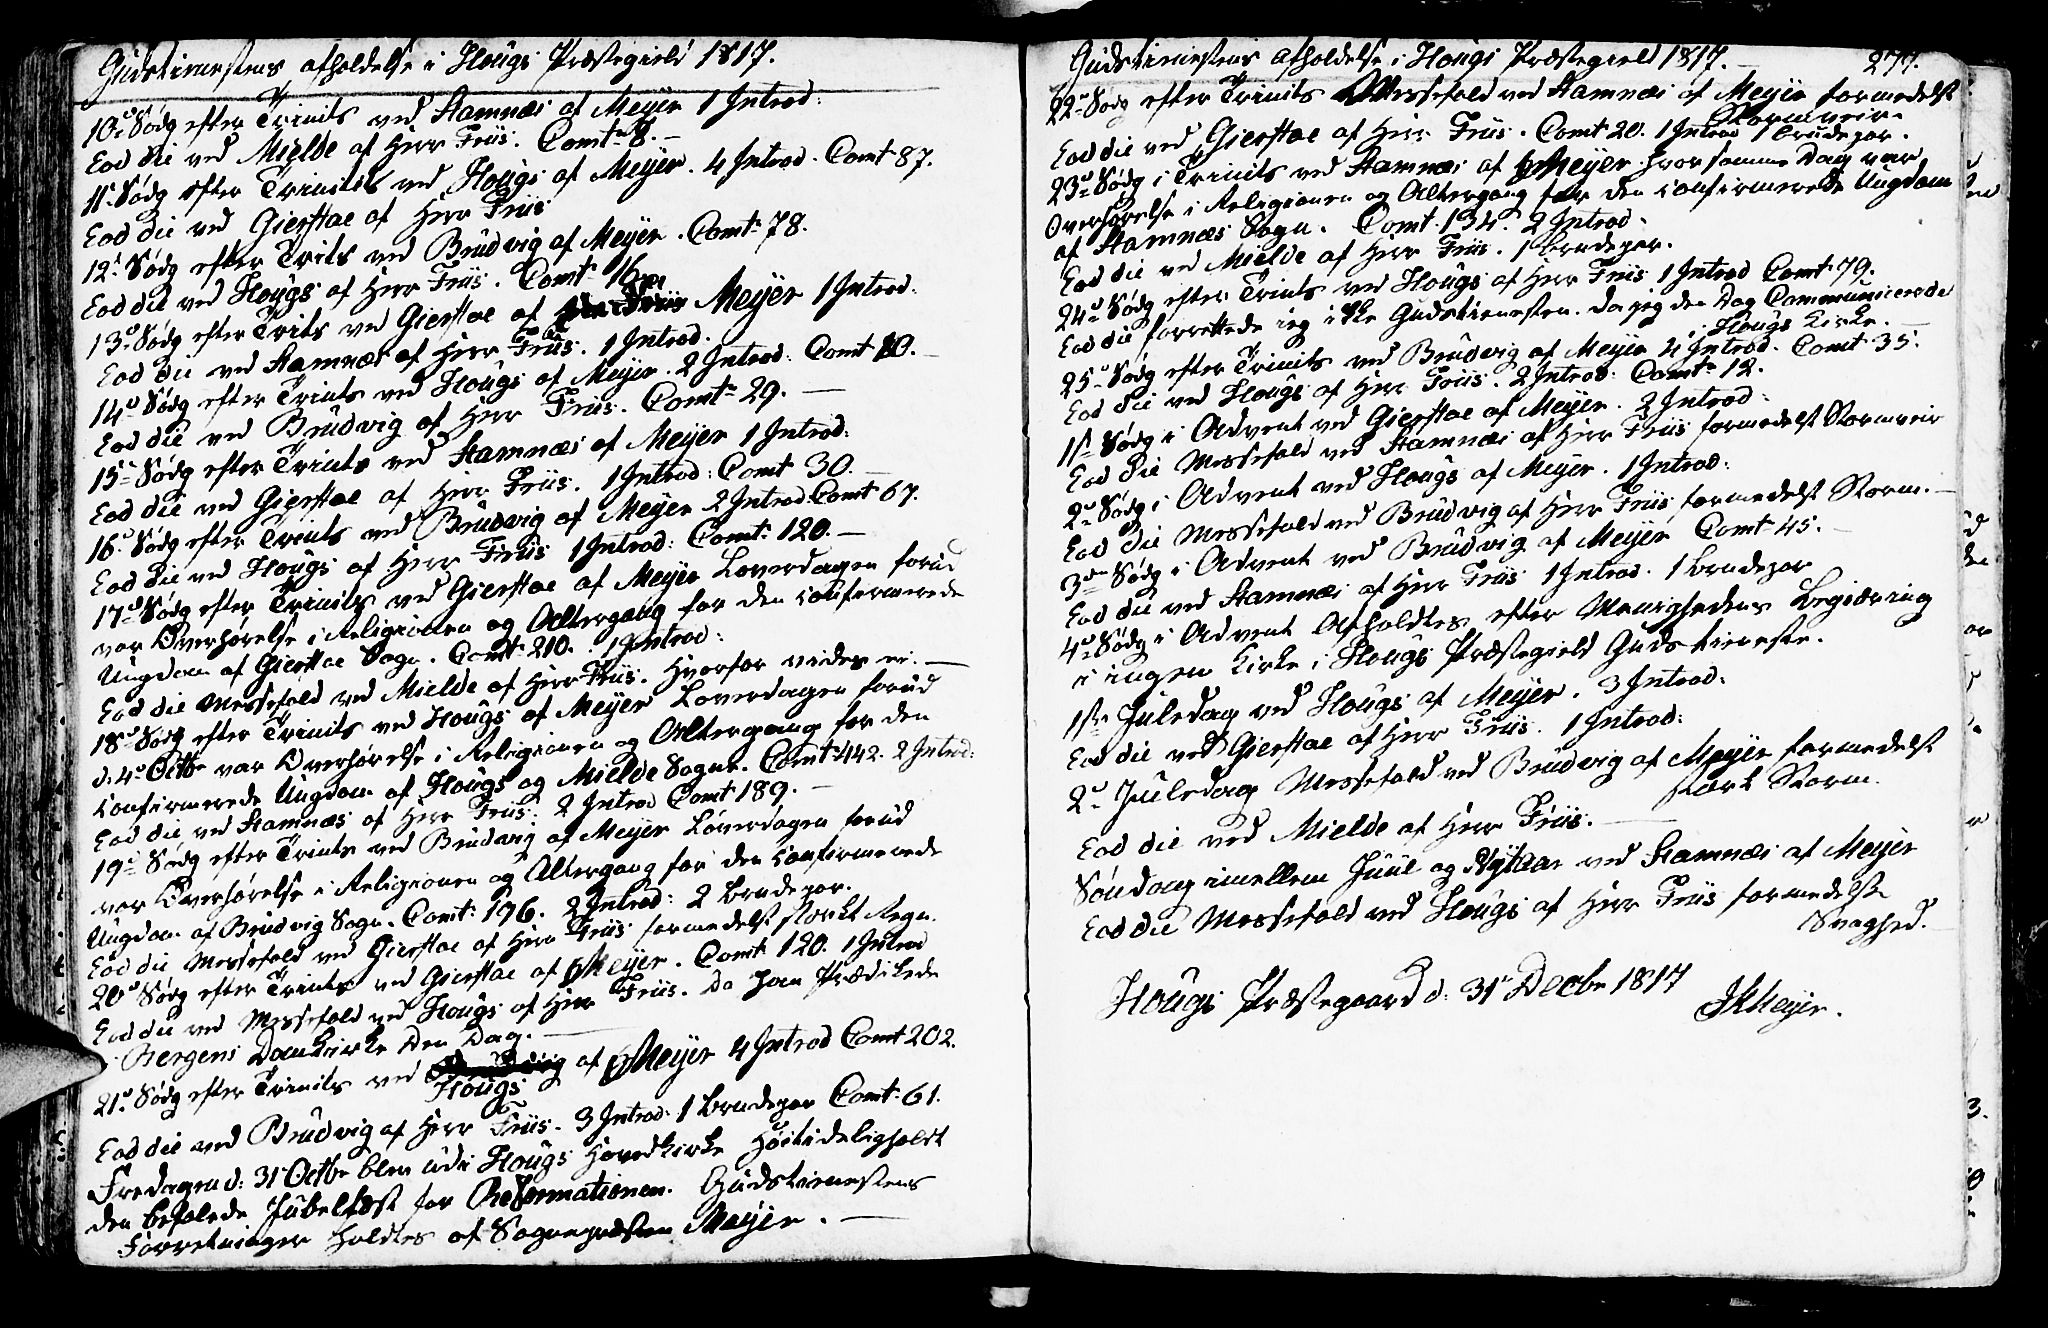 Gudstienestens afholdelse i Hougs Præstegield 1817.
10de Sødg efter Trinits ved Stamnæs af Meyer 1 Introd:
Eod die ved Mielde af Herr Friis. Comt: 8.
11te Sødg efter Trinits ved Hougs af Meyer. 4 Introd. Comt 87.
Eod die ved Gierstae af Herr Friis
12te Sødg efter Trits ved Brudvig af Meyer. Comt: 78.
Eod die ved Hougs af Herr Friis. Comt 16
13de Sødg efter Trits ved Gierstae af Meyer 1 Introd.
Eod die ved Stamnæs af Herr Friis. 1 Introd.
14de Sødg efter Trints ved Hougs af Meyer. 2 Introd: Comt 10.
Eod die ved Brudvig af Herr Friis. Comt: 29.
15de Sødg efter Trints ved Stamnæs af Meyer 1 Introd:
Eod die ved Gierstae af Herr Friis. 1 Introd: Comt 30.
16de Sødg efter Trints ved Brudvig af Meyer 2 Introd: Comt 67.
Eod die ved Hougs af Herr Friis 1 Introd: Comt: 120.
17de Sødg efter Trinits ved Gierstae af Meyer Løverdagen forud
var Overhørelse i Religionen og Altergang for den Confirmerede
Ungdom af Gierstae Sogn. Comt: 210. 1 Introd:
Eod die Messefald ved Mielde af Herr Friis. Hvorfor vides ei.
18de Sødg efter Trinits ved Hougs af Meyer Løverdagen forud
d: 4de Octbr var Overhørelse i Religionen og Altergang for den
Confirmerede Ungdom af Hougs og Mielde Sogne. Comt: 442. 2 Introd:
Eod die ved Stamnæs af Herr Friis: 2 Introd Comt 189.
19de Sødg efter Trints ved Brudvig af Meyer Løverdagen forud
var Overhørelse i Religionen og Altergang for den Confirmerede
Ungdom af Brudvig Sogn. Comt: 196. 2 Introd: 2 Brudepar.
Eod die Messefald ved Gierstae af Herr Friis formedelst stærkt Regn.
20de Sødg efter Trints ved Gierstae af Meyer. Comt: 120. 1 Introd
Eod die ved Messefald ved Hougs af Herr Friis. Da han Prædikede
i Bergens Domkirke Den Dag.
21de Sødg efter Trinits ved Brudvig af Meyer 4 Introd Comt 202.
Hougs
Eod die ved Brudvig af Herr Friis. 3 Introd: 1 Brudepar Comt: 61.
Fredagen d: 31 Octbr blev udi Hougs Hovedkirke Høitideligholdt
den befalede Jubelfæst for Reformationen. Gudstienestens
Forretninger holdtes af Sognepræsten Meyer.
Gudstienestens Afholdelse i Hougs Præstegield 1817.
277.
22de Sødg efter Trinits Messefald ved Stamnæs af Meyer formedelst
Stormveir.
Eod die ved Gierstae af Herr Friis. Comt 20. 1 Introd 1 Brudepar.
23de Sødg i Trinits ved Stamnæs af Meyer hvor samme Dag var
Overhørelse i Religionen og Altergang for den Confirmerede Ungdom
af Stamnæs Sogn. Comt. 134. 2 Introd.
Eod die ved Mielde af Herr Friis. 1 Brudepar.
24de Sødg efter Trints ved Hougs af Herr Friis 1 Introd Comt 79.
Eod die forrettede ieg ikke Gudstienesten. Da jeg den Dag Communicerede
i Hougs Kirke.
25de Sødg efter Trinits ved Brudvig af Meyer 4 Introd. Comt 35.
Eod die ved Hougs af Herr Friis. 2 Introd: Comt: 12.
1ste Sødg i Advent ved Gierstae af Meyer. 2 Introd:
Eod die Messefald ved Stamnæs af Herr Friis formedelst Stormveir
2de Sødg i Advent ved Hougs af Meyer. 1 Introd:
Eod die Messefald ved Brudvig af Herr Friis formedelst Storm.
3die Sødg i Advent ved Brudvig af Meyer Comt 45.
Eod die ved Stamnæs af Herr Friis 1 Introd. 1 Brudepar
4de Sødg i Advent Afholdtes efter Menighedens Begiæring
i ingen Kirke i Hougs Præstegield Gudstieneste.
1ste Juledag ved Hougs af Meyer. 3 Introd:
Eod die ved Gierstae af Herr Friis. 1 Introd:
2de Juledag Messefald ved Brudvig af Meyer formedelst
stærk Storm.
Eod die ved Mielde af Herr Friis.
Søndag imellem Juul og Nytaar ved Stamnæs af Meyer
Eod die Messefald ved Hougs af Herr Friis formedelst
Svaghed.
Hougs Præstegaard d: 31 Decbr 1817
JKMeyer.